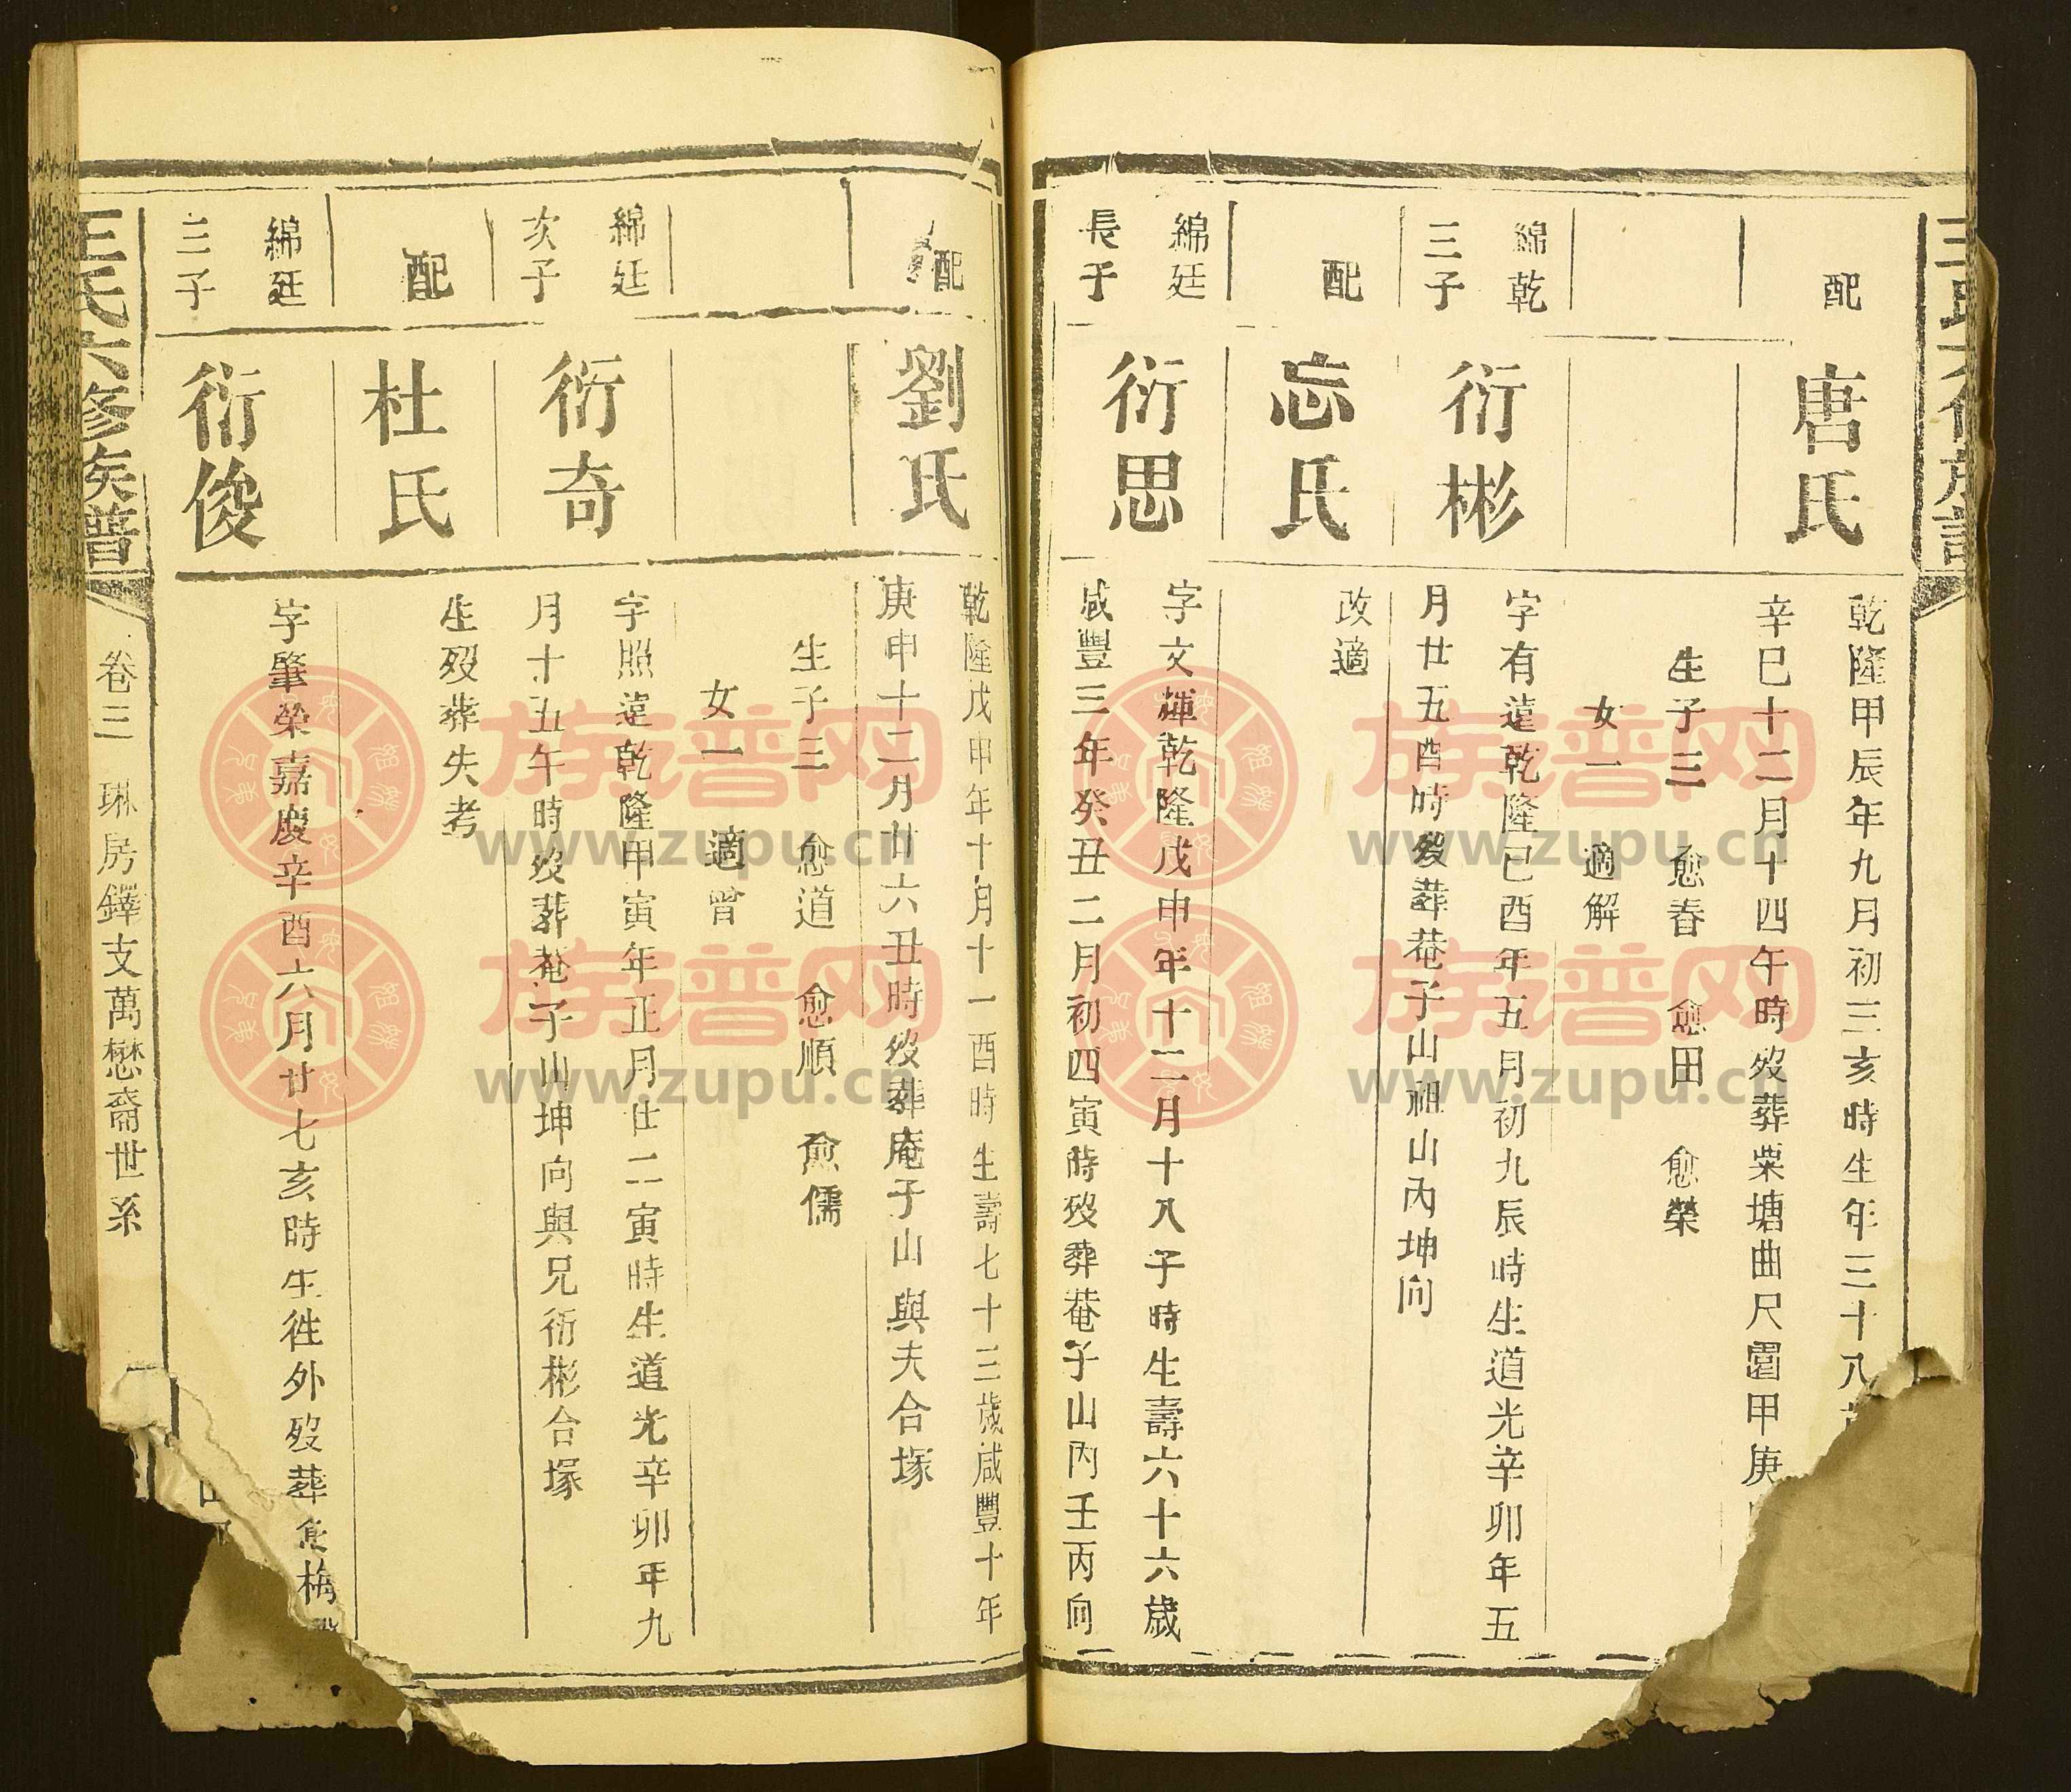 配
唐氏
乾隆甲辰年九月初三亥時生年三十八
辛巳十二月十四午時歿葬粟塘曲尺園甲庚
生子三 愈春 愈田 愈榮
女一 適解
綿乾
三子
衍彬
字有遠乾隆己酉年五月初九辰時生道光辛卯年五
月廿五酉時歿葬菴子山祖山內坤向
配
忘氏
改適
綿廷
長子
衍思
字文輝乾隆戊申年十二月十八子時生壽六十六歲
咸豐三年癸丑二月初四寅時歿葬菴子山丙壬丙向
配
劉氏
乾隆戊申年十月十一酉時生壽七十三歲咸豐十年
庚申十二月廿六丑時歿葬庵子山與夫合塚
生子三 愈道 愈順 愈儒
女一 適曾
綿廷
次子
衍奇
字照遠乾隆甲寅年正月廿二寅時生道光辛卯年九
月十五午時歿葬菴子山坤向與兄衍彬合塚
配
杜氏
生歿葬失考
綿廷
三子
衍俊
字肇榮嘉慶辛酉六月廿七亥時生往外歿葬
王氏六修族譜
卷三 琳房鐸支萬懋裔世系
族譜网
www.zupu.cn
族譜网
www.zupu.cn
族譜网
www.zupu.cn
族譜网
www.zupu.cn